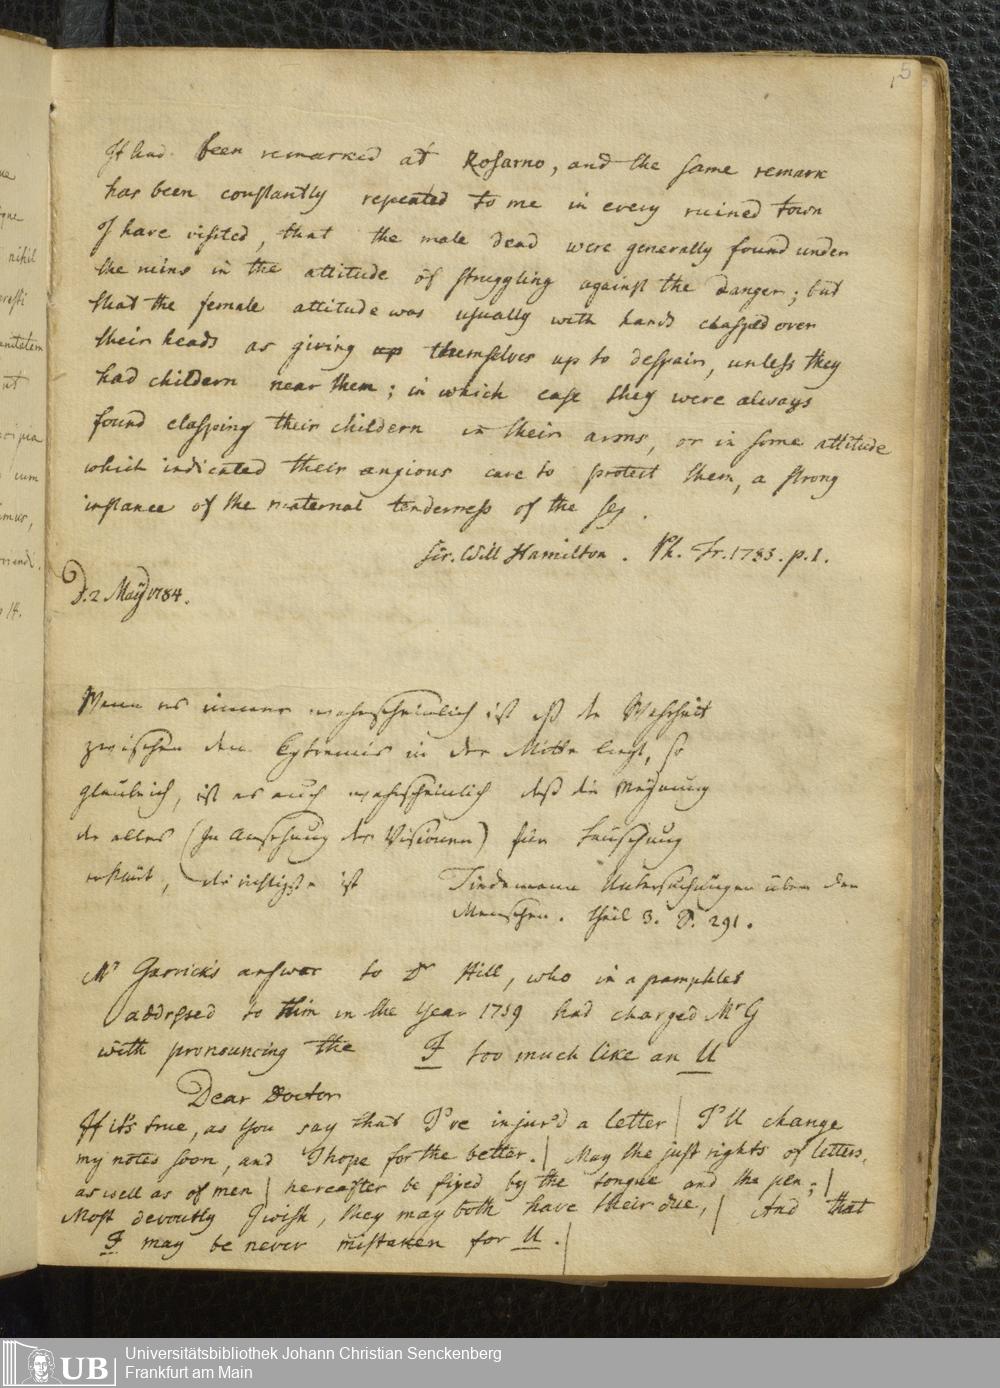 5
It had been remarked at Rosarno, and the same remark
has been constantly repeated to me in every ruined town
I have visited, that the male dead were generally found under
the ruins in the attitude of struggling against the danger; but
that the female attitude was usually with hands clasped over
their heads as giving up themselves up to despair, unless they
had childern near them; in which case they were always
found clasping their childern in their arms, or in some attitude
which indicated their anxious care to protect them, a strong
instance of the maternal tenderness of the sex.
Sir. Will Hamilton. Ph. Tr. 1783. p. 1.
D. 2 May 1784.
Wenn es immer wahrscheinlich ist daß die Wahrheit
zwischen den Extremis in der Mitte liegt, so
glaube ich, ist es auch wahrscheinlich daß die Meynung
die alles (In Ansehung der Visionen) für Täuschung
erklärt, die richtigste ist
Tiedemann Untersuchungen über den
Menschen. Theil 3. S. 291.
Mr Garrick's answer to Dr Hill, who in a pamphlet
addressed to him in the year 1759 had charged Mr G
with pronouncing the I too much like an U
Dear Doctor
If it's true, as you say that I've injur'd a letter | I'll change
my notes soon, and I hope for the better. | May the just rights of letters,
as well as of men | hereafter be fixed by the tongue and the pen; |
Most devoutly I wish, they may both have their due, | And that
I may be never mistaken for U. |
nihil
anitatem
cum
UB
Universitätsbibliothek Johann Christian Senckenberg
Frankfurt am Main